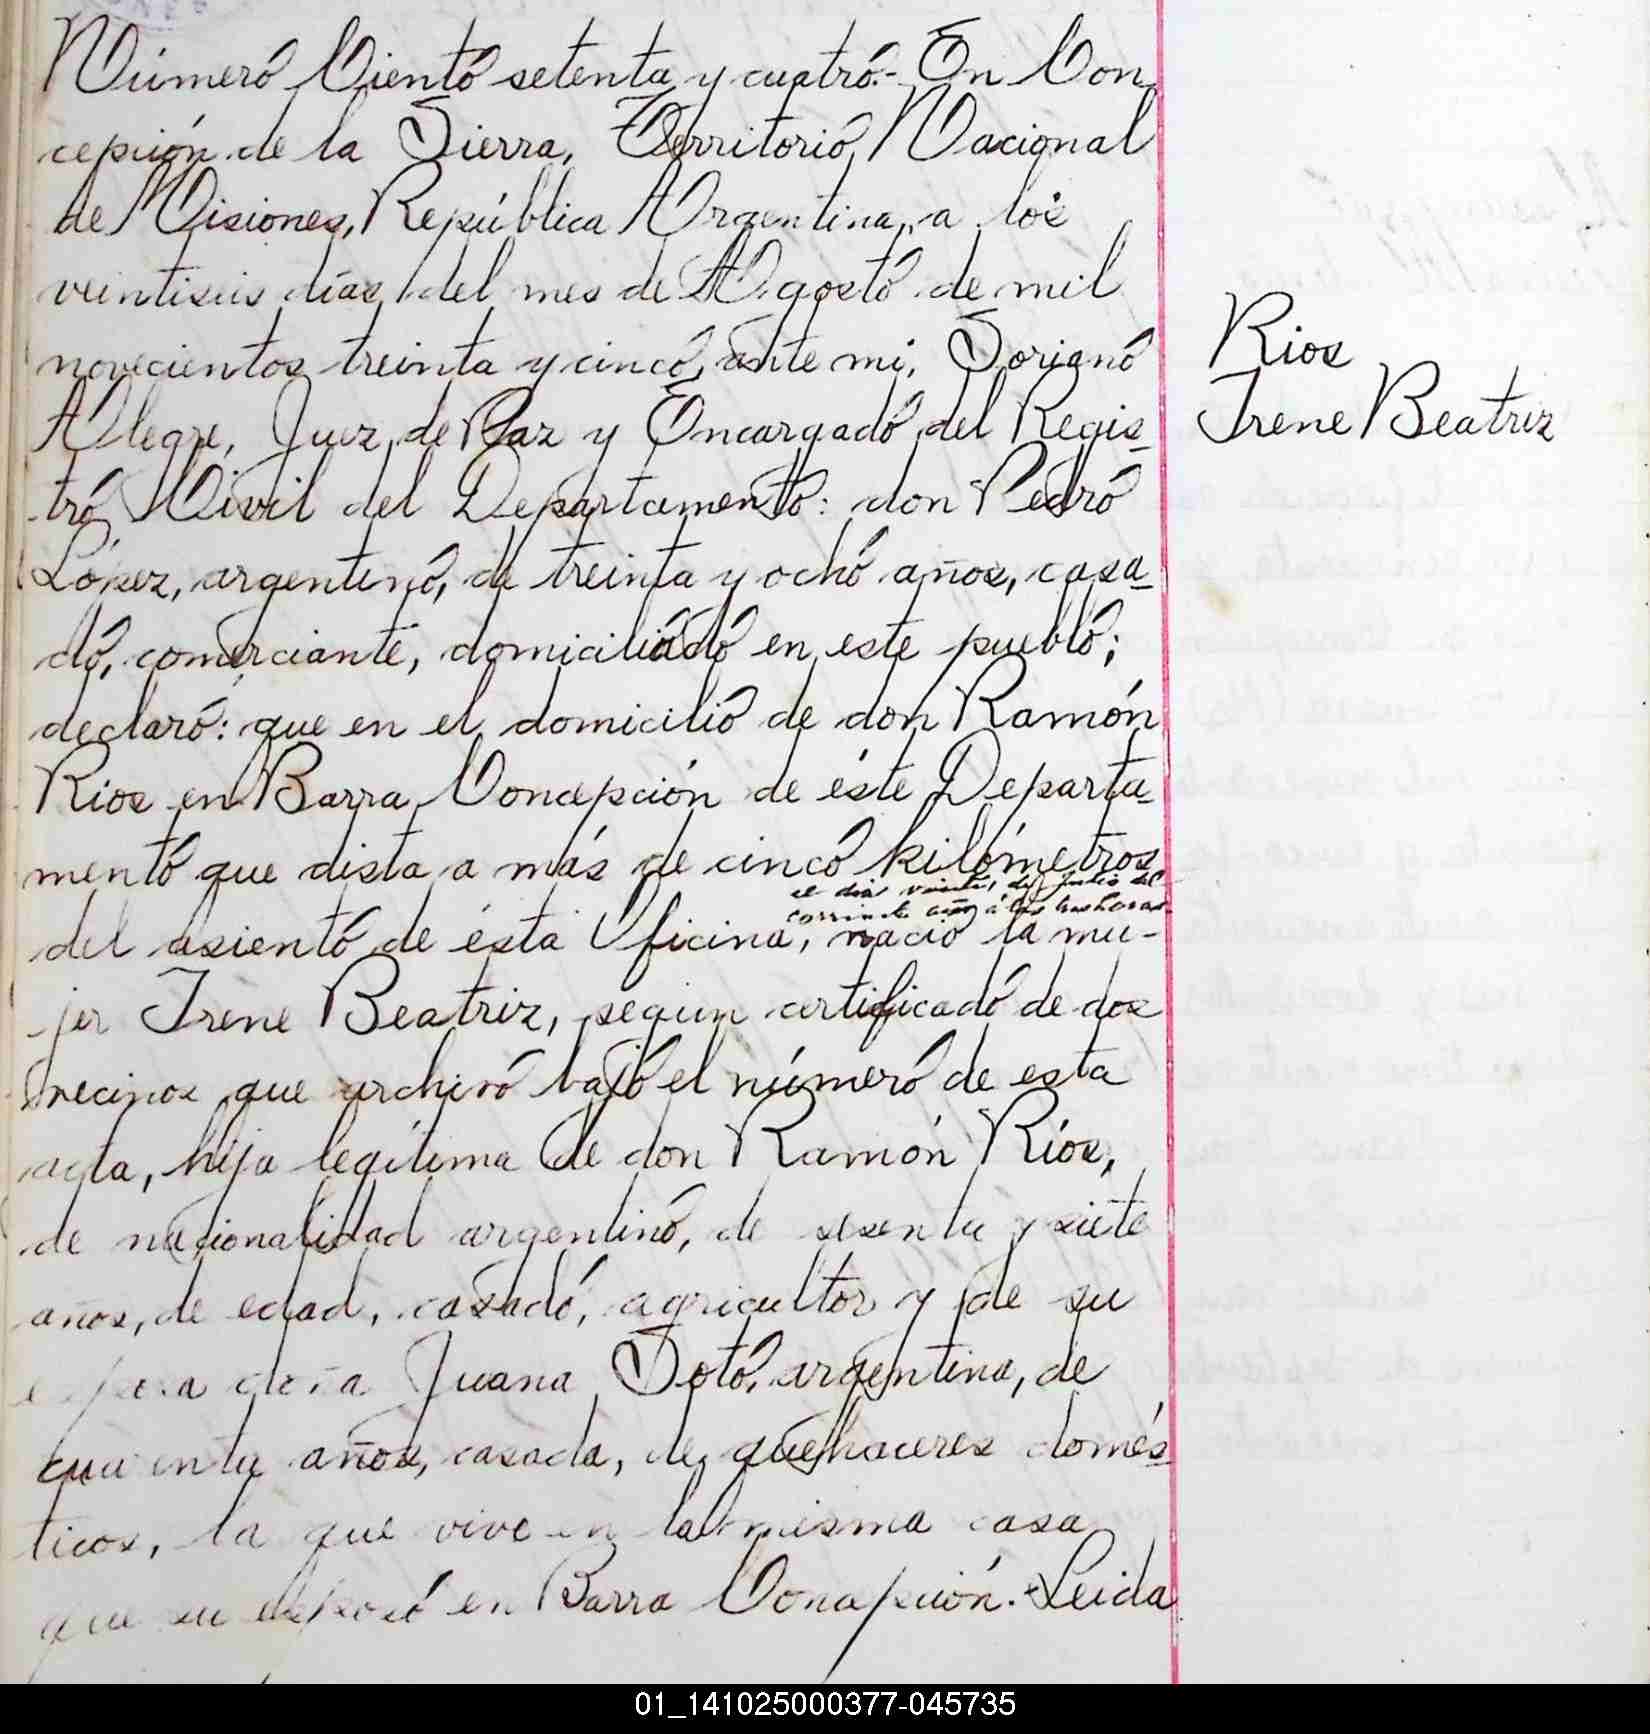 Número Ciento setenta y cuatro.- En Con
cepción de la Sierra, Territorio Nacional
de Misiones, República Argentina, a los
veintiseis días del mes de Agosto de mil
novecientos treinta y cinco, ante mi, Soriano
Alegre, Juez de Paz y Encargado del Regis-
tro Civil del Departamento: don Pedro
López, argentino, de treinta y ocho años, casa-
do, comerciante, domiciliado en este pueblo;
declaró: que en el domicilio de don Ramón
Rios en Barra Concepción de éste Departa-
mento que dista a más de cinco kilómetros
el dia veinte, de Julio del
corriente año á las tres horas
del asiento de ésta Oficina, nació la mu-
jer Irene Beatriz, segun certificado de dos
vecinos que archivo bajo el número de esta
acta, hija legítima de don Ramón Ríos,
de nacionalidad argentino, de sesenta y siete
años, de edad, casado, agricultor y de su
esposa doña Juana Soto, argentina, de
cuarenta años, casada, de quehaceres domés-
ticos, la que vive en la misma casa
que su esposo en Barra Concepción.- Leida
Rios
Irene Beatriz
01_141025000377-045735